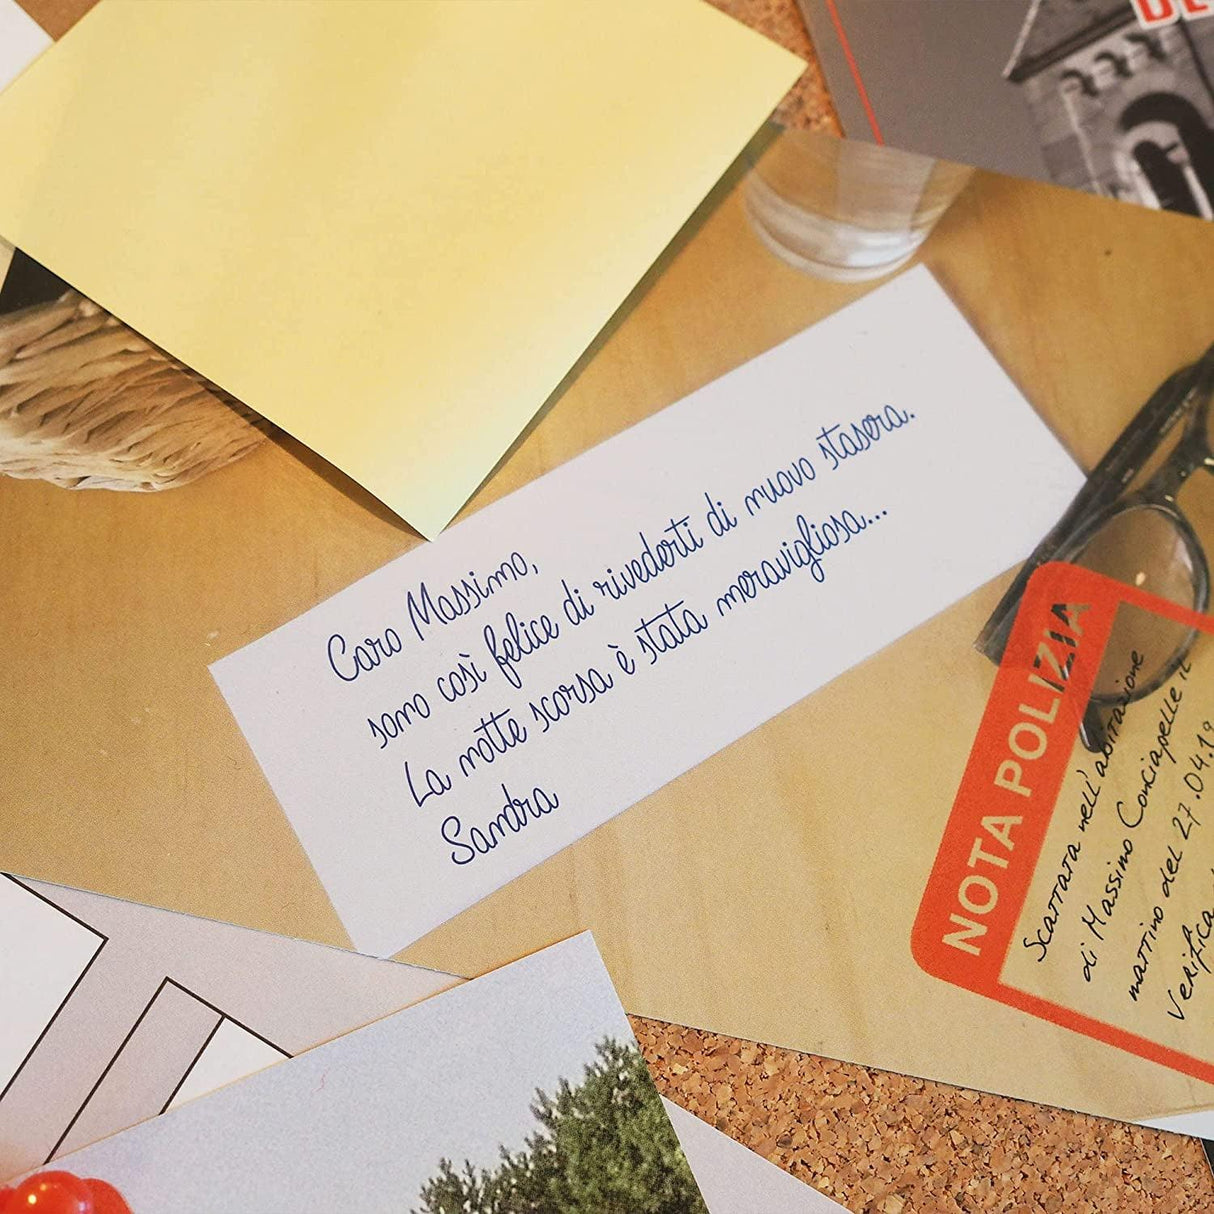 Caro Massimo,
sono così felice di rivederti di nuovo stasera.
La notte scorsa è stata meravigliosa...
Sandra
NOTA POLIZIA
Scattata nell'abitazione
di Massimo Conciapelle il
mattino del 27.04.19